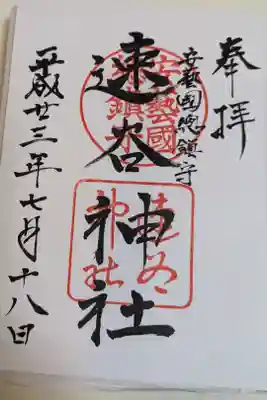 奉拝
安藝國総鎮守
速谷神社
平成廿三年七月十八日
安藝國
総鎮守
速谷
神社